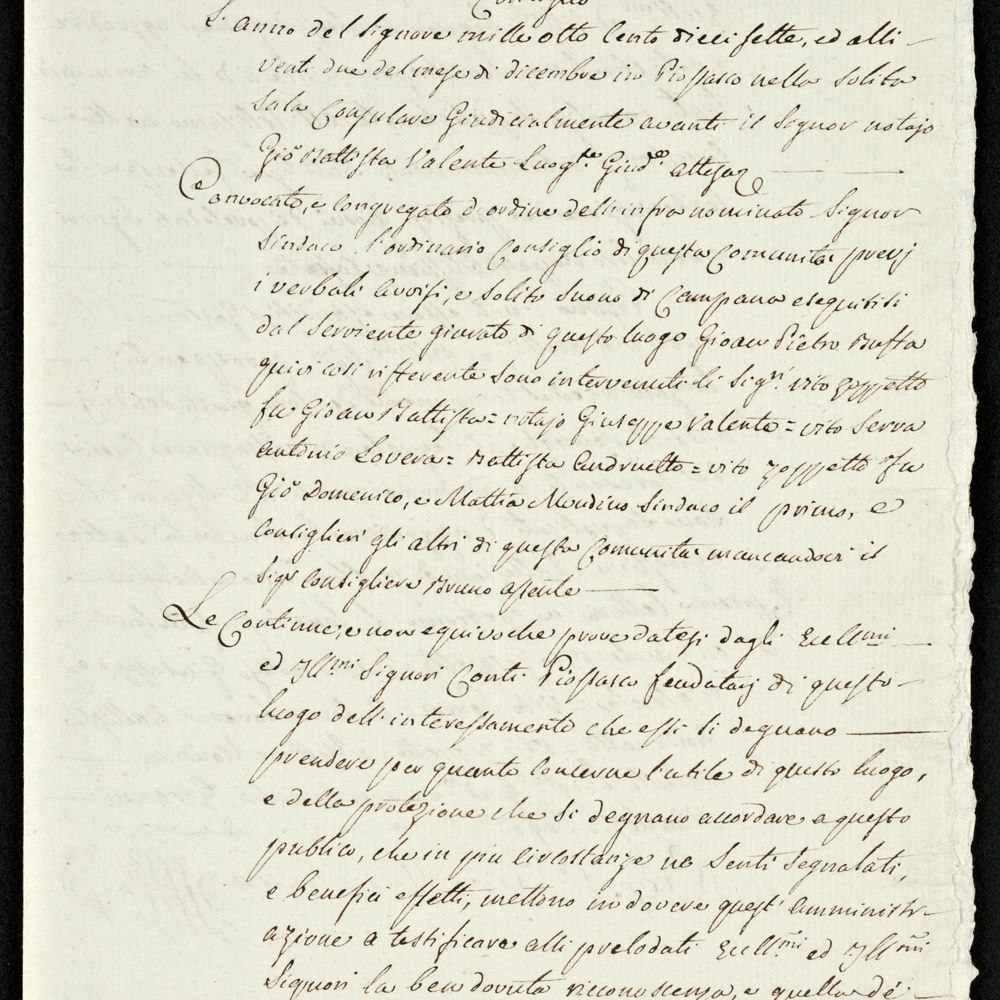 L'anno del Signore mille otto cento dieci sette, ed alli
venti due del mese di dicembre in Piossasco nella solita
sala Consulare Giudicialmente avanti il Signor notajo
Gio. Battista Valente Luog.te Giud.e
Convocato, e congregato d'ordine dell'infra nominato Signor
Sindaco l'ordinario Consiglio di questa Comunità previj
i verbali avvisi, e solito suono di Campana eseguitisi
dal serviente giurato di questo luogo Gioan Pietro Buffa
quivi così rifferente sono intervenuti li Sig.ri vito zoppetto
fu Gioan Battista = notajo Giuseppe Valente = vito Serra
Antonio Lovera = Battista Andruetto = vito zoppetto fu
Gio. Domenico, e Mattia Mondino Sindaco il primo, e
Consiglieri gli altri di questa Comunità mancandoci il
Sig.r Consigliere Bruno assente
Le Continue, e non equivoche prove datesi dagli Ecell.mi
ed Ill.mi Signori Conti Piossasco feudatarj di questo
luogo dell'interessamento che essi si degnano
prendere per quanto concerne l'utile di questo luogo,
e della protezione che si degnano accordare a questo
publico, che in più circostanze ne sentì segnalati,
e benefici effetti, mettono in dovere quest'amministr-
azione a testificare alli prelodati Ecell.mi ed Ill.mi
Signori la ben dovuta riconoscenza, e quella de-